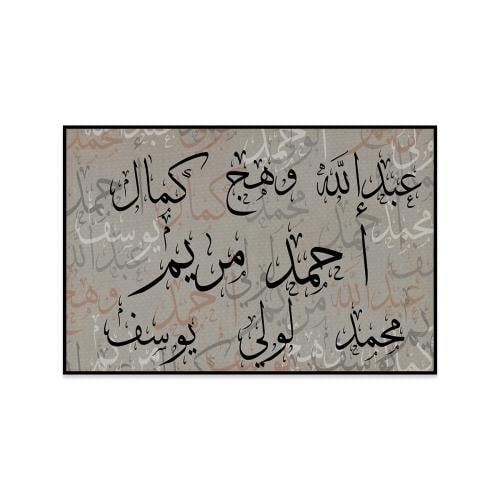 عبدإلله وهج كمال
أحمد مريم
محمد لولي يوسف